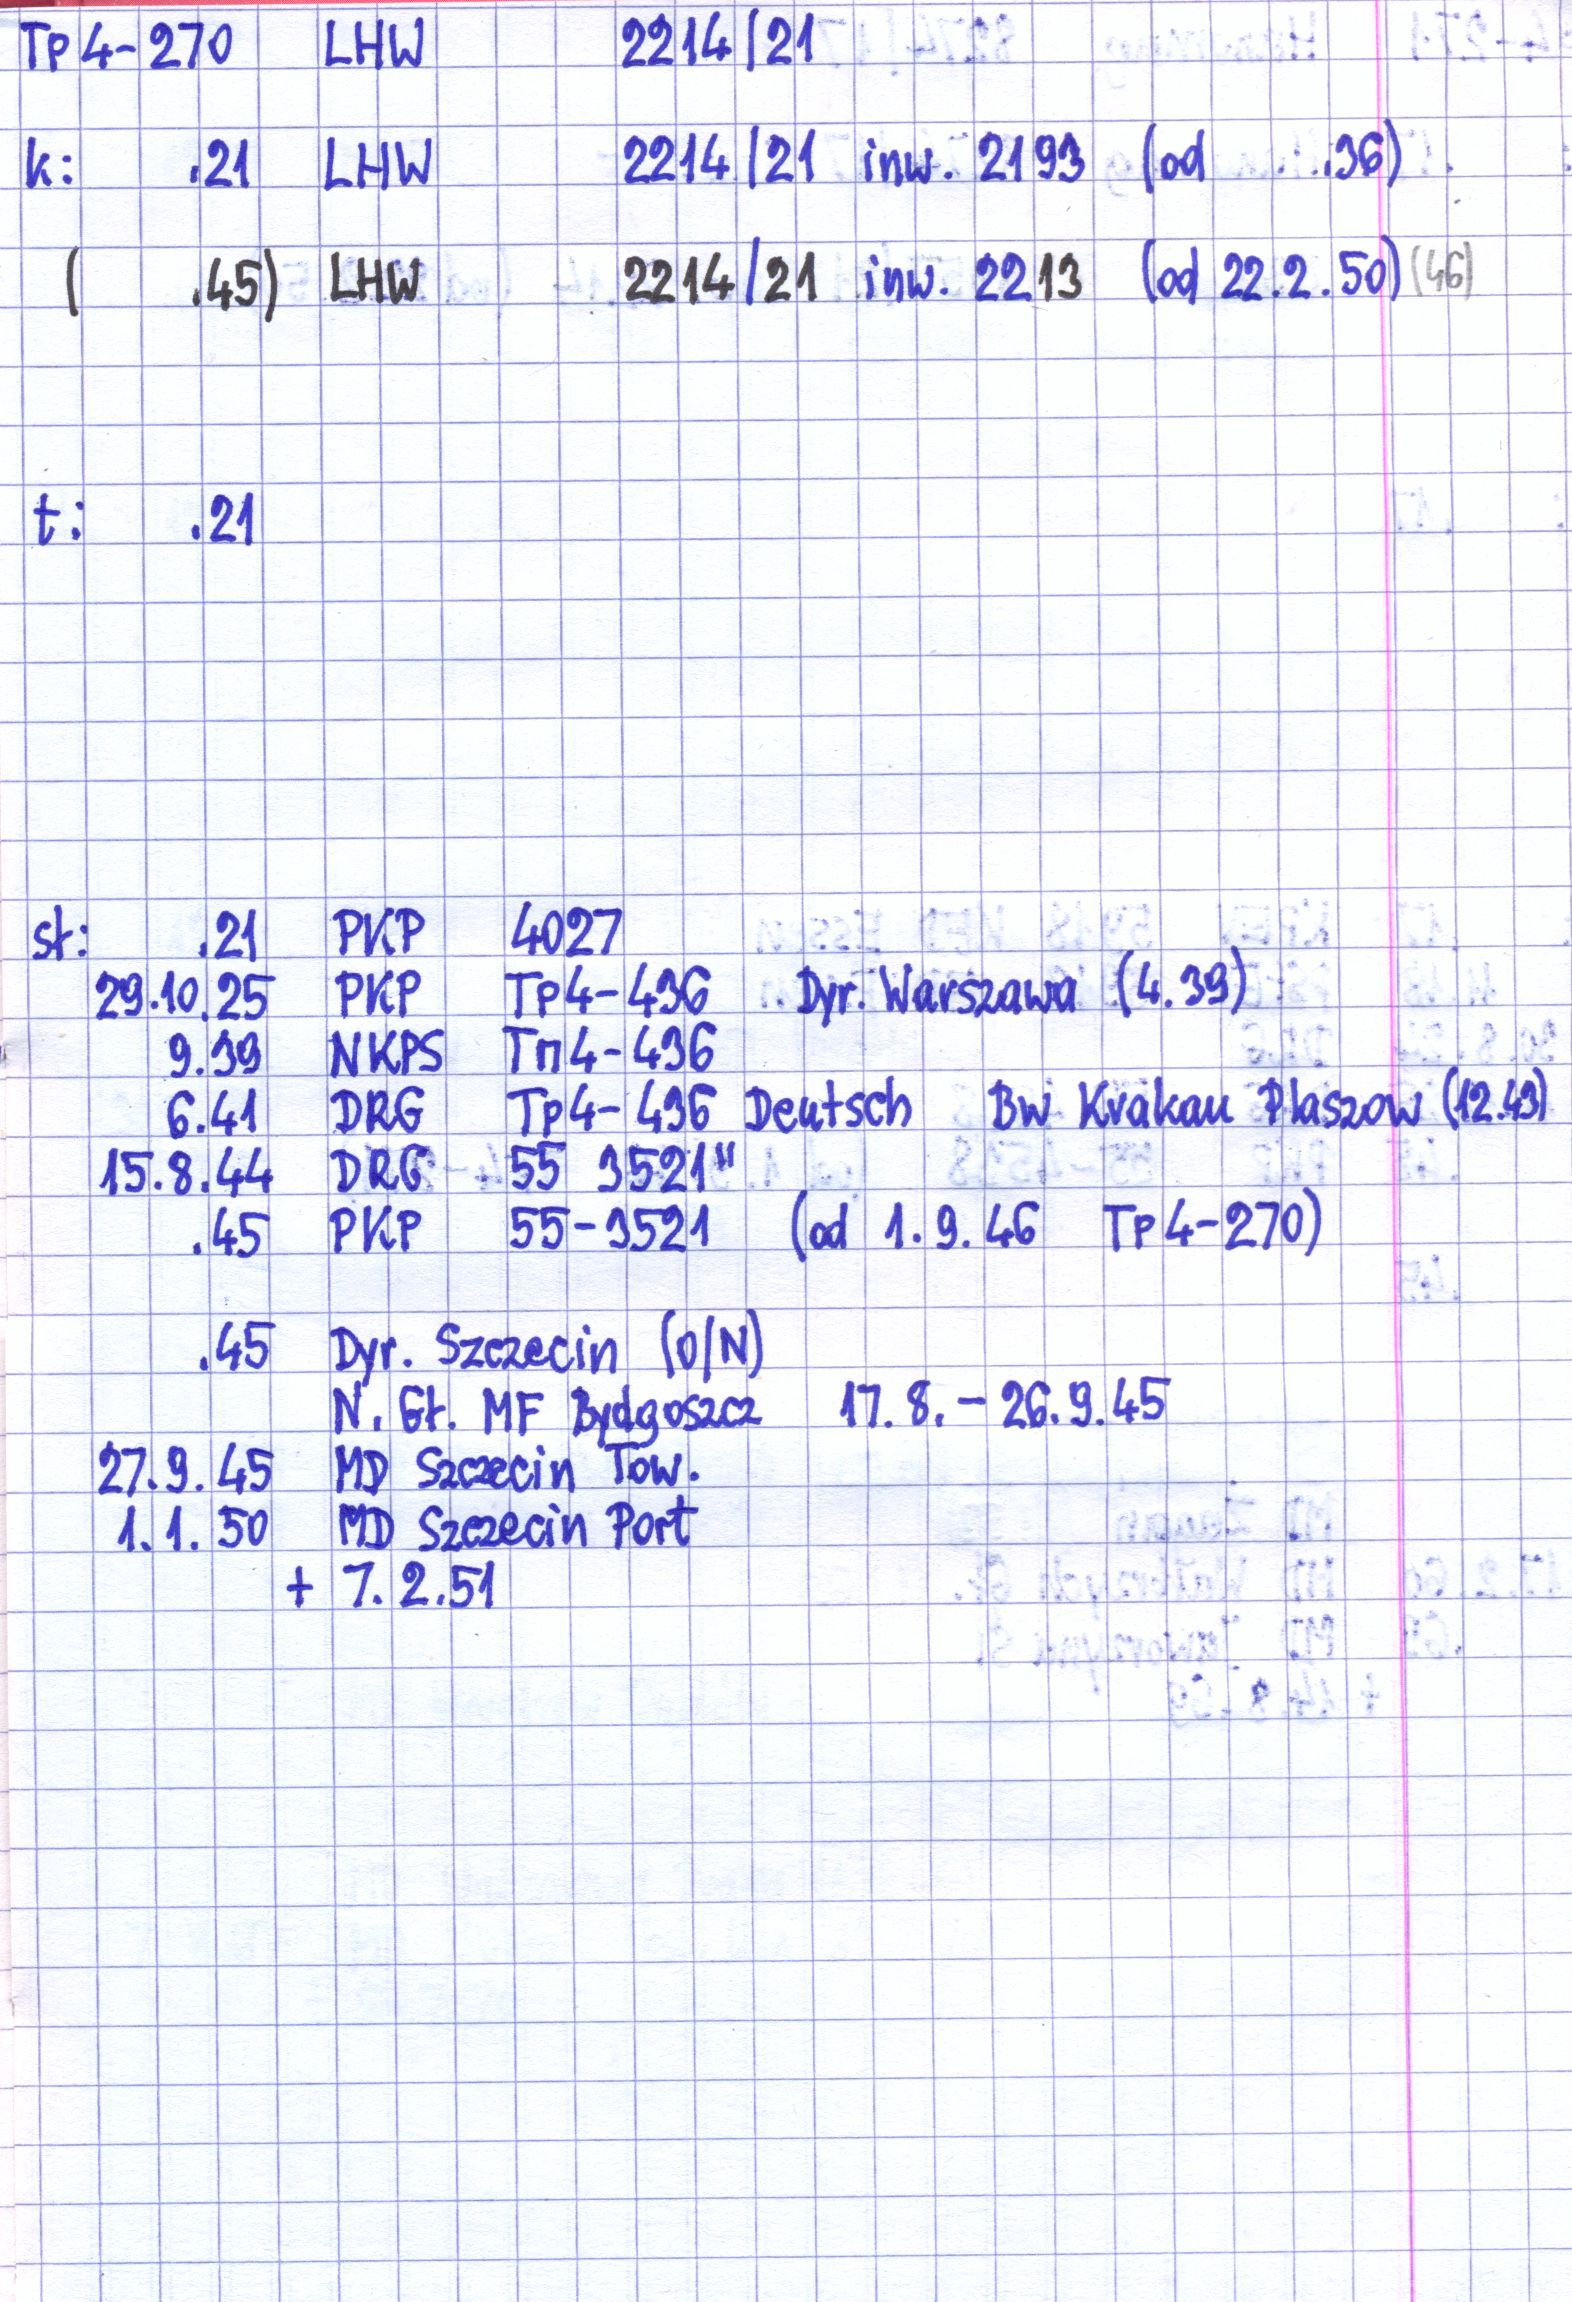 Tp4-270 LHW 2214/21
k: .21 LHW 2214/21 inw. 2193 (od .36)
( .45) LHW 2214/21 inw. 2213 (od 22.2.50) (46)
t: .21
st: .21 PKP 4027
29.10.25 PKP Tp4-436 Dyr. Warszawa (4.39)
9.39 NKPS Тп4-436
6.41 DRG Tp4-436 Deutsch Bw Krakau Plaszow (12.43)
15.8.44 DRG 55 3521"
.45 PKP 55-3521 (od 1.9.46 Tp4-270)
.45 Dyr. Szczecin (O/N)
N. Gł. MF Bydgoszcz 17.8.-26.9.45
27.9.45 MD Szczecin Tow.
1.1.50 MD Szczecin Port
+ 7.2.51